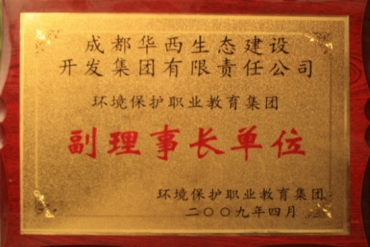 成都华西生态建设
开发集团有限责任公司
环境保护职业教育集团
副理事长单位
环境保护职业教育集团
二〇〇九年四月